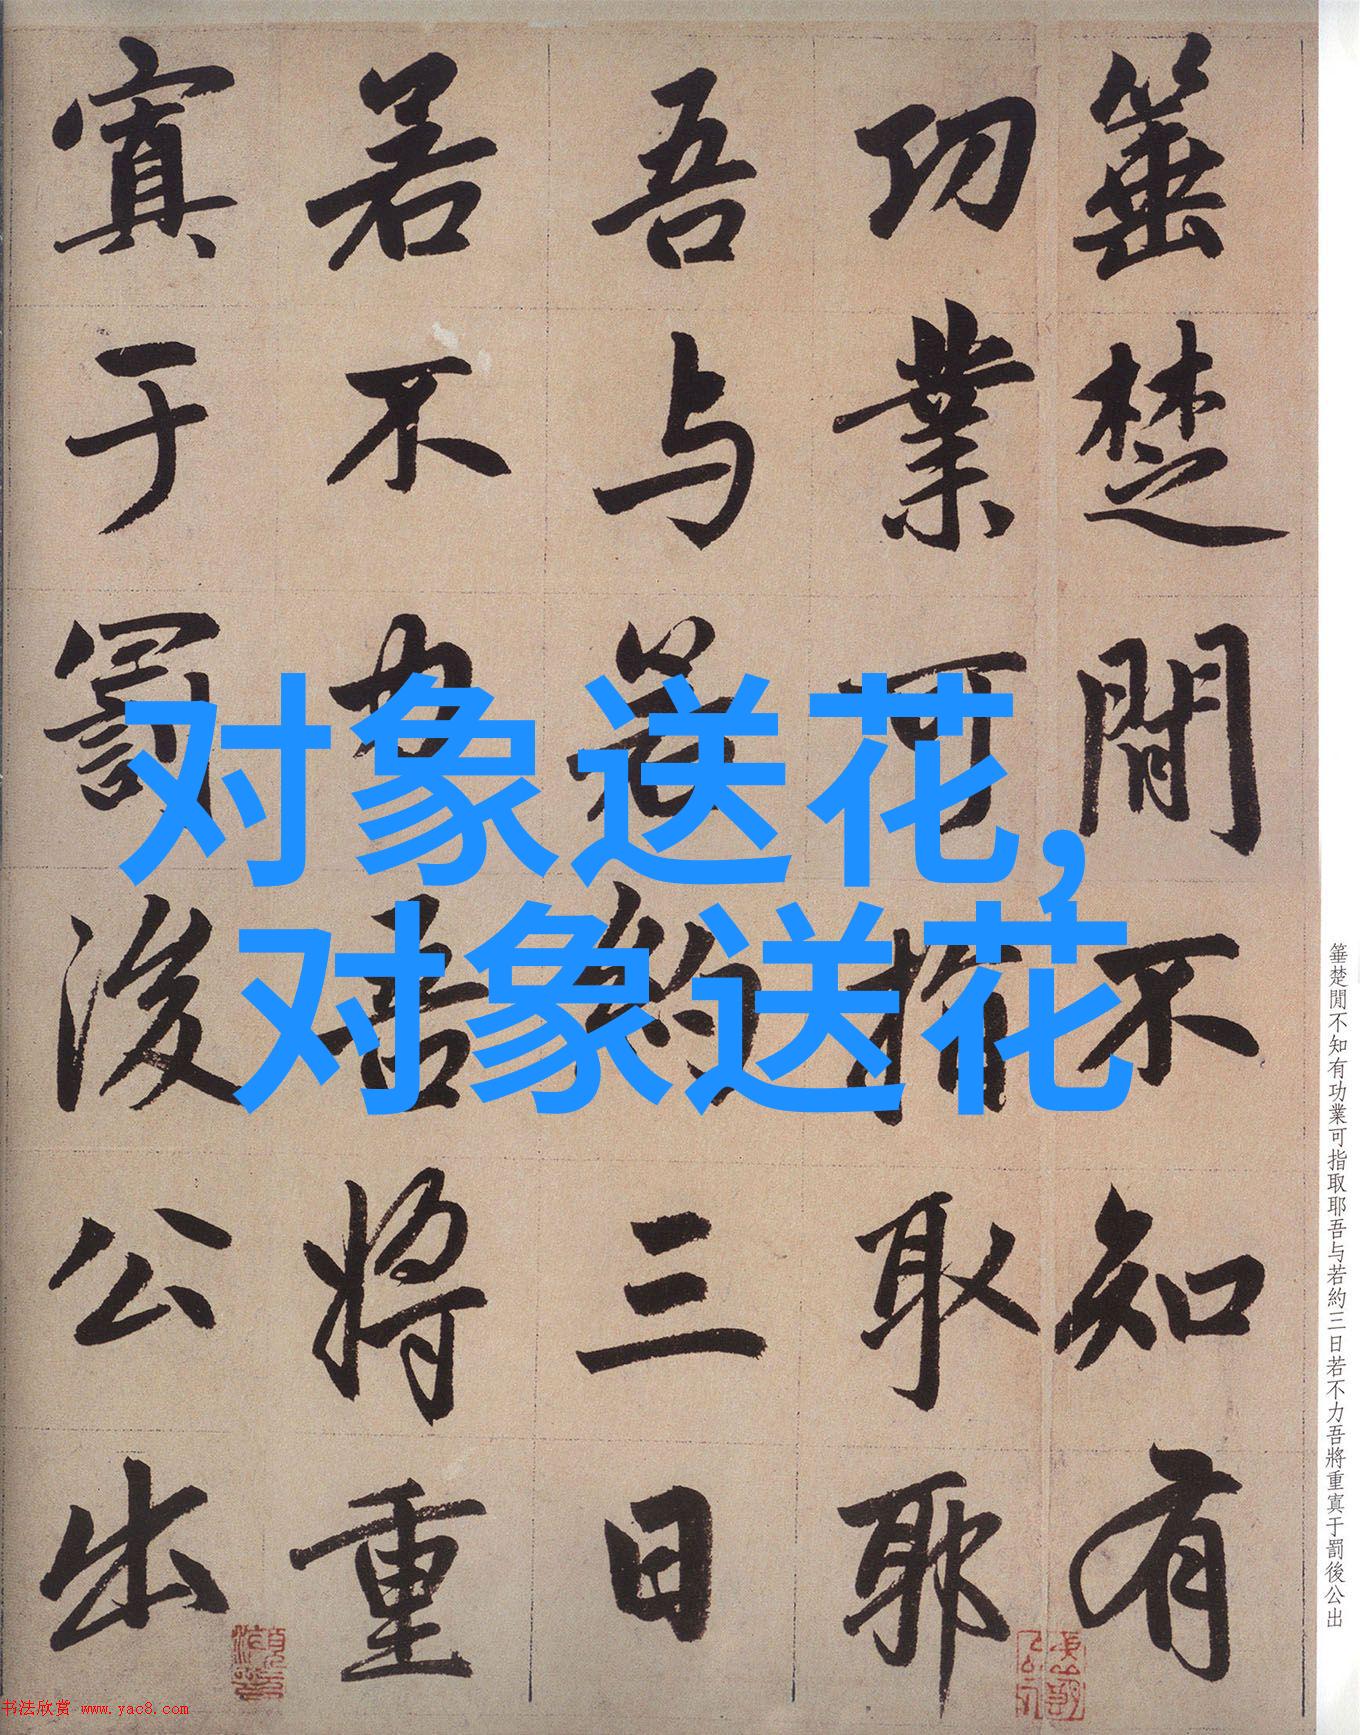 箠楚間不知有
功業可指取耶
吾与若約三日
若不力吾將重
寘于罰後公出
对象送花,
对象送花
箠楚間不知有功業可指取耶吾与若約三日若不力吾將重寘于罰後公出
书法欣赏 www.yac8.com